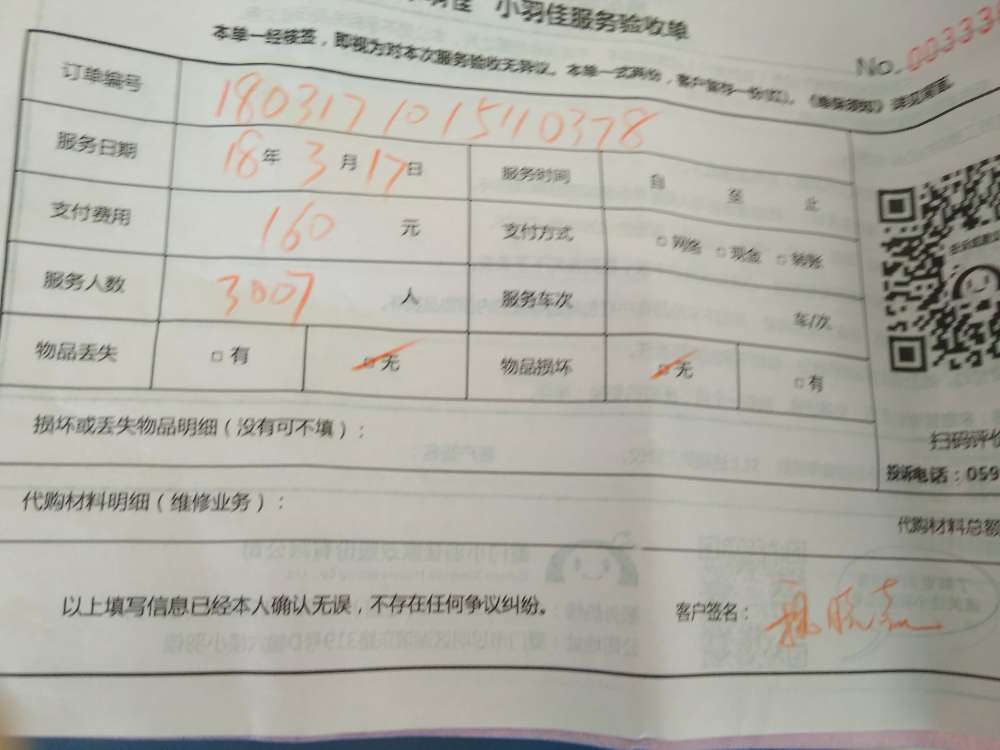 小羽佳服务验收单
No. 00333
本单一经核签，即视为对本次服务验收无异议。本单一式两份，客户留存一份(红)。《维保须知》详见背面。
订单编号 180317101540378
服务日期 18年 3月 17日 服务时间 自 至 止
支付费用 160 元 支付方式 □网络 □现金 □转账
服务人数 3007 人 服务车次 车/次
物品丢失 □有 □无 物品损坏 □无 □有
损坏或丢失物品明细（没有可不填）：
扫码评价
投诉电话：059
代购材料明细（维修业务）：
代购材料总额
以上填写信息已经本人确认无误，不存在任何争议纠纷。
客户签名：